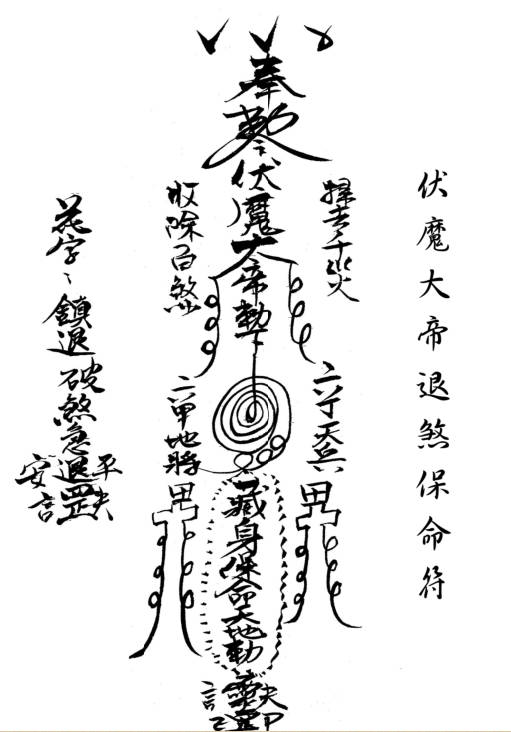 伏魔大帝退煞保命符
奉勅令伏魔大帝勅下
掃去千災
收除百煞
六丁天兵
六甲地將
藏身保命天地動
花字
鎮退破煞急退
平安